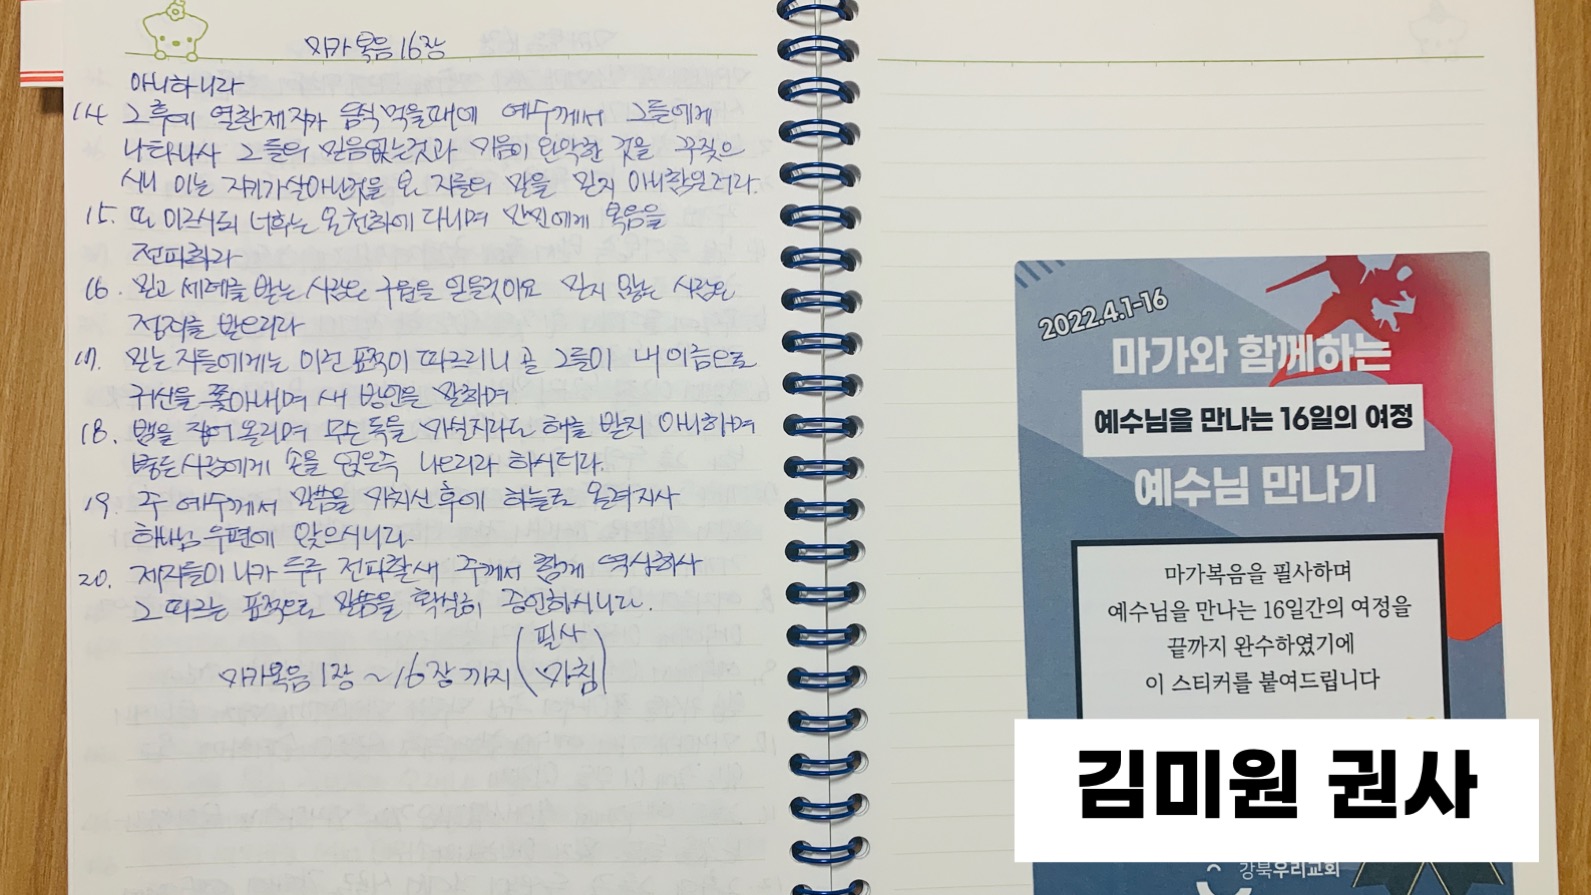 마가복음 16장
아니하니라
14 그후에 열한제자가 음식 먹을때에 예수께서 그들에게
나타나사 그들의 믿음없는것과 마음이 완악한 것을 꾸짖으
시니 이는 자기가 살아난것을 본 자들의 말을 믿지 아니함일러라.
15. 또 이르시되 너희는 온천하에 다니며 만민에게 복음을
전파하라
16. 믿고 세례를 받는 사람은 구원을 얻을것이요 믿지 않는 사람은
정죄를 받으리라
17. 믿는 자들에게는 이런 표적이 따르리니 곧 그들이 내 이름으로
귀신을 쫓아내며 새 방언을 말하며
18. 뱀을 집어올리며 무슨 독을 마실지라도 해를 받지 아니하며
병든사람에게 손을 얹은즉 나으리라 하시더라.
19. 주 예수께서 말씀을 마치신 후에 하늘로 올려지사
하나님 우편에 앉으시니라.
20. 제자들이 나가 두루 전파할새 주께서 함께 역사하사
그 따르는 표적으로 말씀을 확실히 증언하시니라.
마가복음 1장~16장까지 (필사
마침)
2022.4.1-16
마가와 함께하는
예수님을 만나는 16일의 여정
예수님 만나기
마가복음을 필사하며
예수님을 만나는 16일간의 여정을
끝까지 완수하였기에
이 스티커를 붙여드립니다
김미원 권사
강북우리교회